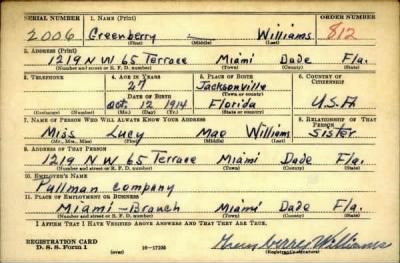 SERIAL NUMBER 1. NAME (Print) ORDER NUMBER
2006 Greenberry — Williams 812
(First) (Middle) (Last)
2. ADDRESS (Print)
1219 N W 65 Terrace Miami Dade Fla.
(Number and street or R. F. D. number) (Town) (County) (State)
3. TELEPHONE 4. AGE IN YEARS 5. PLACE OF BIRTH 6. COUNTRY OF CITIZENSHIP
27 Jacksonville
DATE OF BIRTH (Town or county)
Oct. 12 1914 Florida U.S.A.
(Exchange) (Number) (Mo.) (Day) (Yr.) (State or country)
7. NAME OF PERSON WHO WILL ALWAYS KNOW YOUR ADDRESS 8. RELATIONSHIP OF THAT PERSON
Miss Lucy Mae William Sister
(Mr., Mrs., Miss) (First) (Middle) (Last)
9. ADDRESS OF THAT PERSON
1219 N W 65 Terrace Miami Dade Fla.
(Number and street or R. F. D. number) (Town) (County) (State)
10. EMPLOYER'S NAME
Pullman company
11. PLACE OF EMPLOYMENT OR BUSINESS
Miami - Branch Miami Dade Fla.
(Number and street or R. F. D. number) (Town) (County) (State)
I AFFIRM THAT I HAVE VERIFIED ABOVE ANSWERS AND THAT THEY ARE TRUE.
REGISTRATION CARD
D. S. S. Form 1 (over) Greenberry Williams
(Registrant's signature)